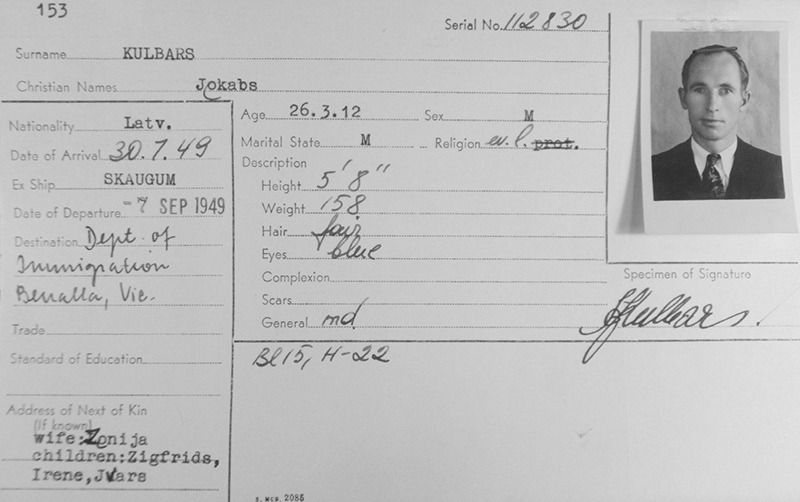 153
Serial No. 112830
Surname KULBARS
Christian Names Jokabs
Nationality Latv.
Date of Arrival 30.7.49
Ex Ship SKAUGUM
Date of Departure -7 SEP 1949
Destination Dept. of
Immigration
Benalla, Vic.
Trade
Standard of Education
Address of Next of Kin
(If known)
wife: Zonija
children: Zigfrids,
Irene, Jvars
Age 26.3.12 Sex M
Marital State M Religion ev. l. prot.
Description
Height 5'8"
Weight 158
Hair fair
Eyes blue
Complexion
Scars
General md.
Bl 15, H-22
Specimen of Signature
JKulbars.
S. MCD. 2085